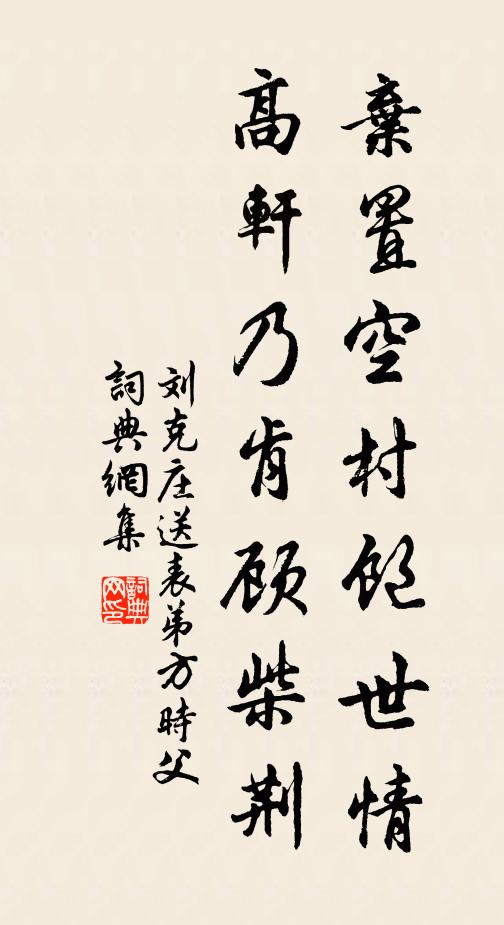 棄置空村飽世情
高軒乃肯顾柴荆
刘克庄送表弟方時父
詞典網集
詞典网印